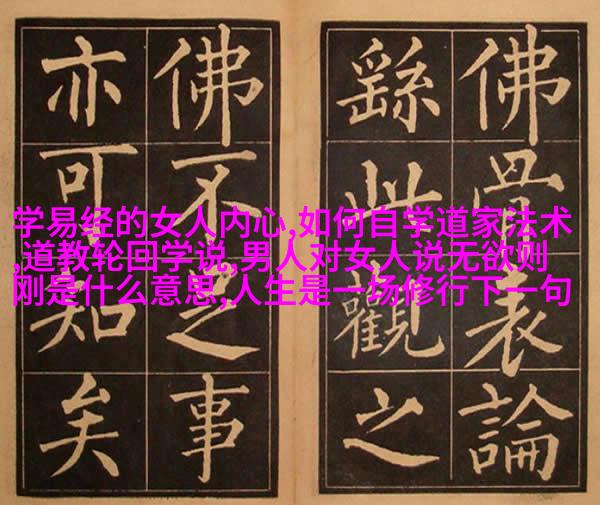 佛骨表論
繇此觀之
佛不足事
亦可知矣
学易经的女人内心,如何自学道家法术
,道教轮回学说,男人对女人说无欲则
刚是什么意思,人生是一场修行下一句